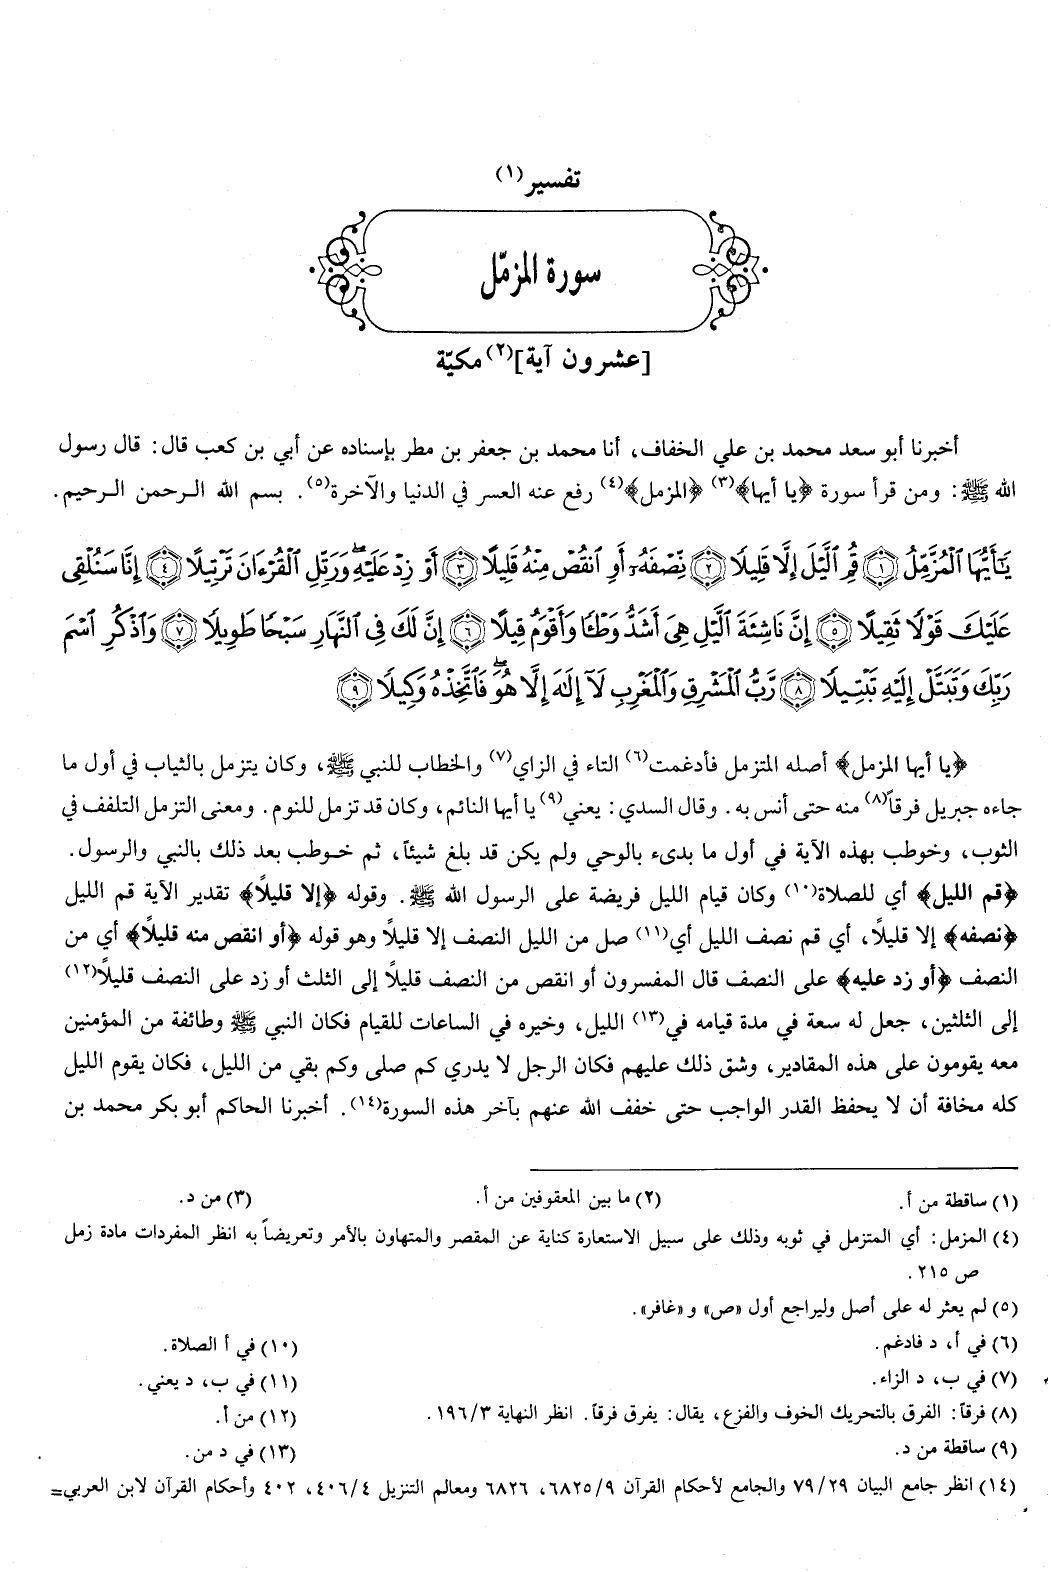 تفسير(١)
سورة المزمّل
[عشرون آية](٢) مكيّة
أخبرنا أبو سعد محمد بن علي الخفاف، أنا محمد بن جعفر بن مطر بإسناده عن أبي بن كعب قال: قال رسول
الله ﷺ: ومن قرأ سورة ﴿يا أيها﴾(٣) ﴿المزمل﴾(٤) رفع عنه العسر في الدنيا والآخرة(٥). بسم الله الرحمن الرحيم.
يَٰٓأَيُّهَا ٱلْمُزَّمِّلُ ١ قُمِ ٱلَّيْلَ إِلَّا قَلِيلًا ٢ نِّصْفَهُۥٓ أَوِ ٱنقُصْ مِنْهُ قَلِيلًا ٣ أَوْ زِدْ عَلَيْهِ ۖ وَرَتِّلِ ٱلْقُرْءَانَ تَرْتِيلًا ٤ إِنَّا سَنُلْقِى
عَلَيْكَ قَوْلًا ثَقِيلًا ٥ إِنَّ نَاشِئَةَ ٱلَّيْلِ هِىَ أَشَدُّ وَطْـًٔا وَأَقْوَمُ قِيلًا ٦ إِنَّ لَكَ فِى ٱلنَّهَارِ سَبْحًا طَوِيلًا ٧ وَٱذْكُرِ ٱسْمَ
رَبِّكَ وَتَبَتَّلْ إِلَيْهِ تَبْتِيلًا ٨ رَّبُّ ٱلْمَشْرِقِ وَٱلْمَغْرِبِ لَآ إِلَٰهَ إِلَّا هُوَ ۖ فَٱتَّخِذْهُ وَكِيلًا ٩
﴿يا أيها المزمل﴾ أصله المتزمل فأدغمت(٦) التاء في الزاي(٧) والخطاب للنبي ﷺ، وكان يتزمل بالثياب في أول ما
جاءه جبريل فرقاً(٨) منه حتى أنس به. وقال السدي: يعني(٩) يا أيها النائم، وكان قد تزمل للنوم. ومعنى التزمل التلفف في
الثوب، وخوطب بهذه الآية في أول ما بدىء بالوحي ولم يكن قد بلغ شيئاً، ثم خوطب بعد ذلك بالنبي والرسول.
﴿قم الليل﴾ أي للصلاة(١٠) وكان قيام الليل فريضة على الرسول الله ﷺ. وقوله ﴿إلا قليلاً﴾ تقدير الآية قم الليل
﴿نصفه﴾ إلا قليلاً، أي قم نصف الليل أي(١١) صل من الليل النصف إلا قليلاً وهو قوله ﴿أو انقص منه قليلاً﴾ أي من
النصف ﴿أو زد عليه﴾ على النصف قال المفسرون أو انقص من النصف قليلاً إلى الثلث أو زد على النصف قليلاً(١٢)
إلى الثلثين، جعل له سعة في مدة قيامه في(١٣) الليل، وخيره في الساعات للقيام فكان النبي ﷺ وطائفة من المؤمنين
معه يقومون على هذه المقادير، وشق ذلك عليهم فكان الرجل لا يدري كم صلى وكم بقي من الليل، فكان يقوم الليل
كله مخافة أن لا يحفظ القدر الواجب حتى خفف الله عنهم بآخر هذه السورة(١٤). أخبرنا الحاكم أبو بكر محمد بن
(١) ساقطة من أ. (٢) ما بين المعقوفين من أ. (٣) من د.
(٤) المزمل: أي المتزمل في ثوبه وذلك على سبيل الاستعارة كناية عن المقصر والمتهاون بالأمر وتعريضاً به انظر المفردات مادة زمل
ص ٢١٥.
(٥) لم يعثر له على أصل وليراجع أول «ص» و «غافر».
(٦) في أ، د فادغم. (١٠) في أ الصلاة.
(٧) في ب، د الزاء. (١١) في ب، د يعني.
(٨) فرقاً: الفرق بالتحريك الخوف والفزع، يقال: يفرق فرقاً. انظر النهاية ١٩٦/٣. (١٢) من أ.
(٩) ساقطة من د. (١٣) في د من.
(١٤) انظر جامع البيان ٧٩/٢٩ والجامع لأحكام القرآن ٦٨٢٥/٩، ٦٨٢٦ ومعالم التنزيل ٤٠٦/٤، ٤٠٢ وأحكام القرآن لابن العربي=